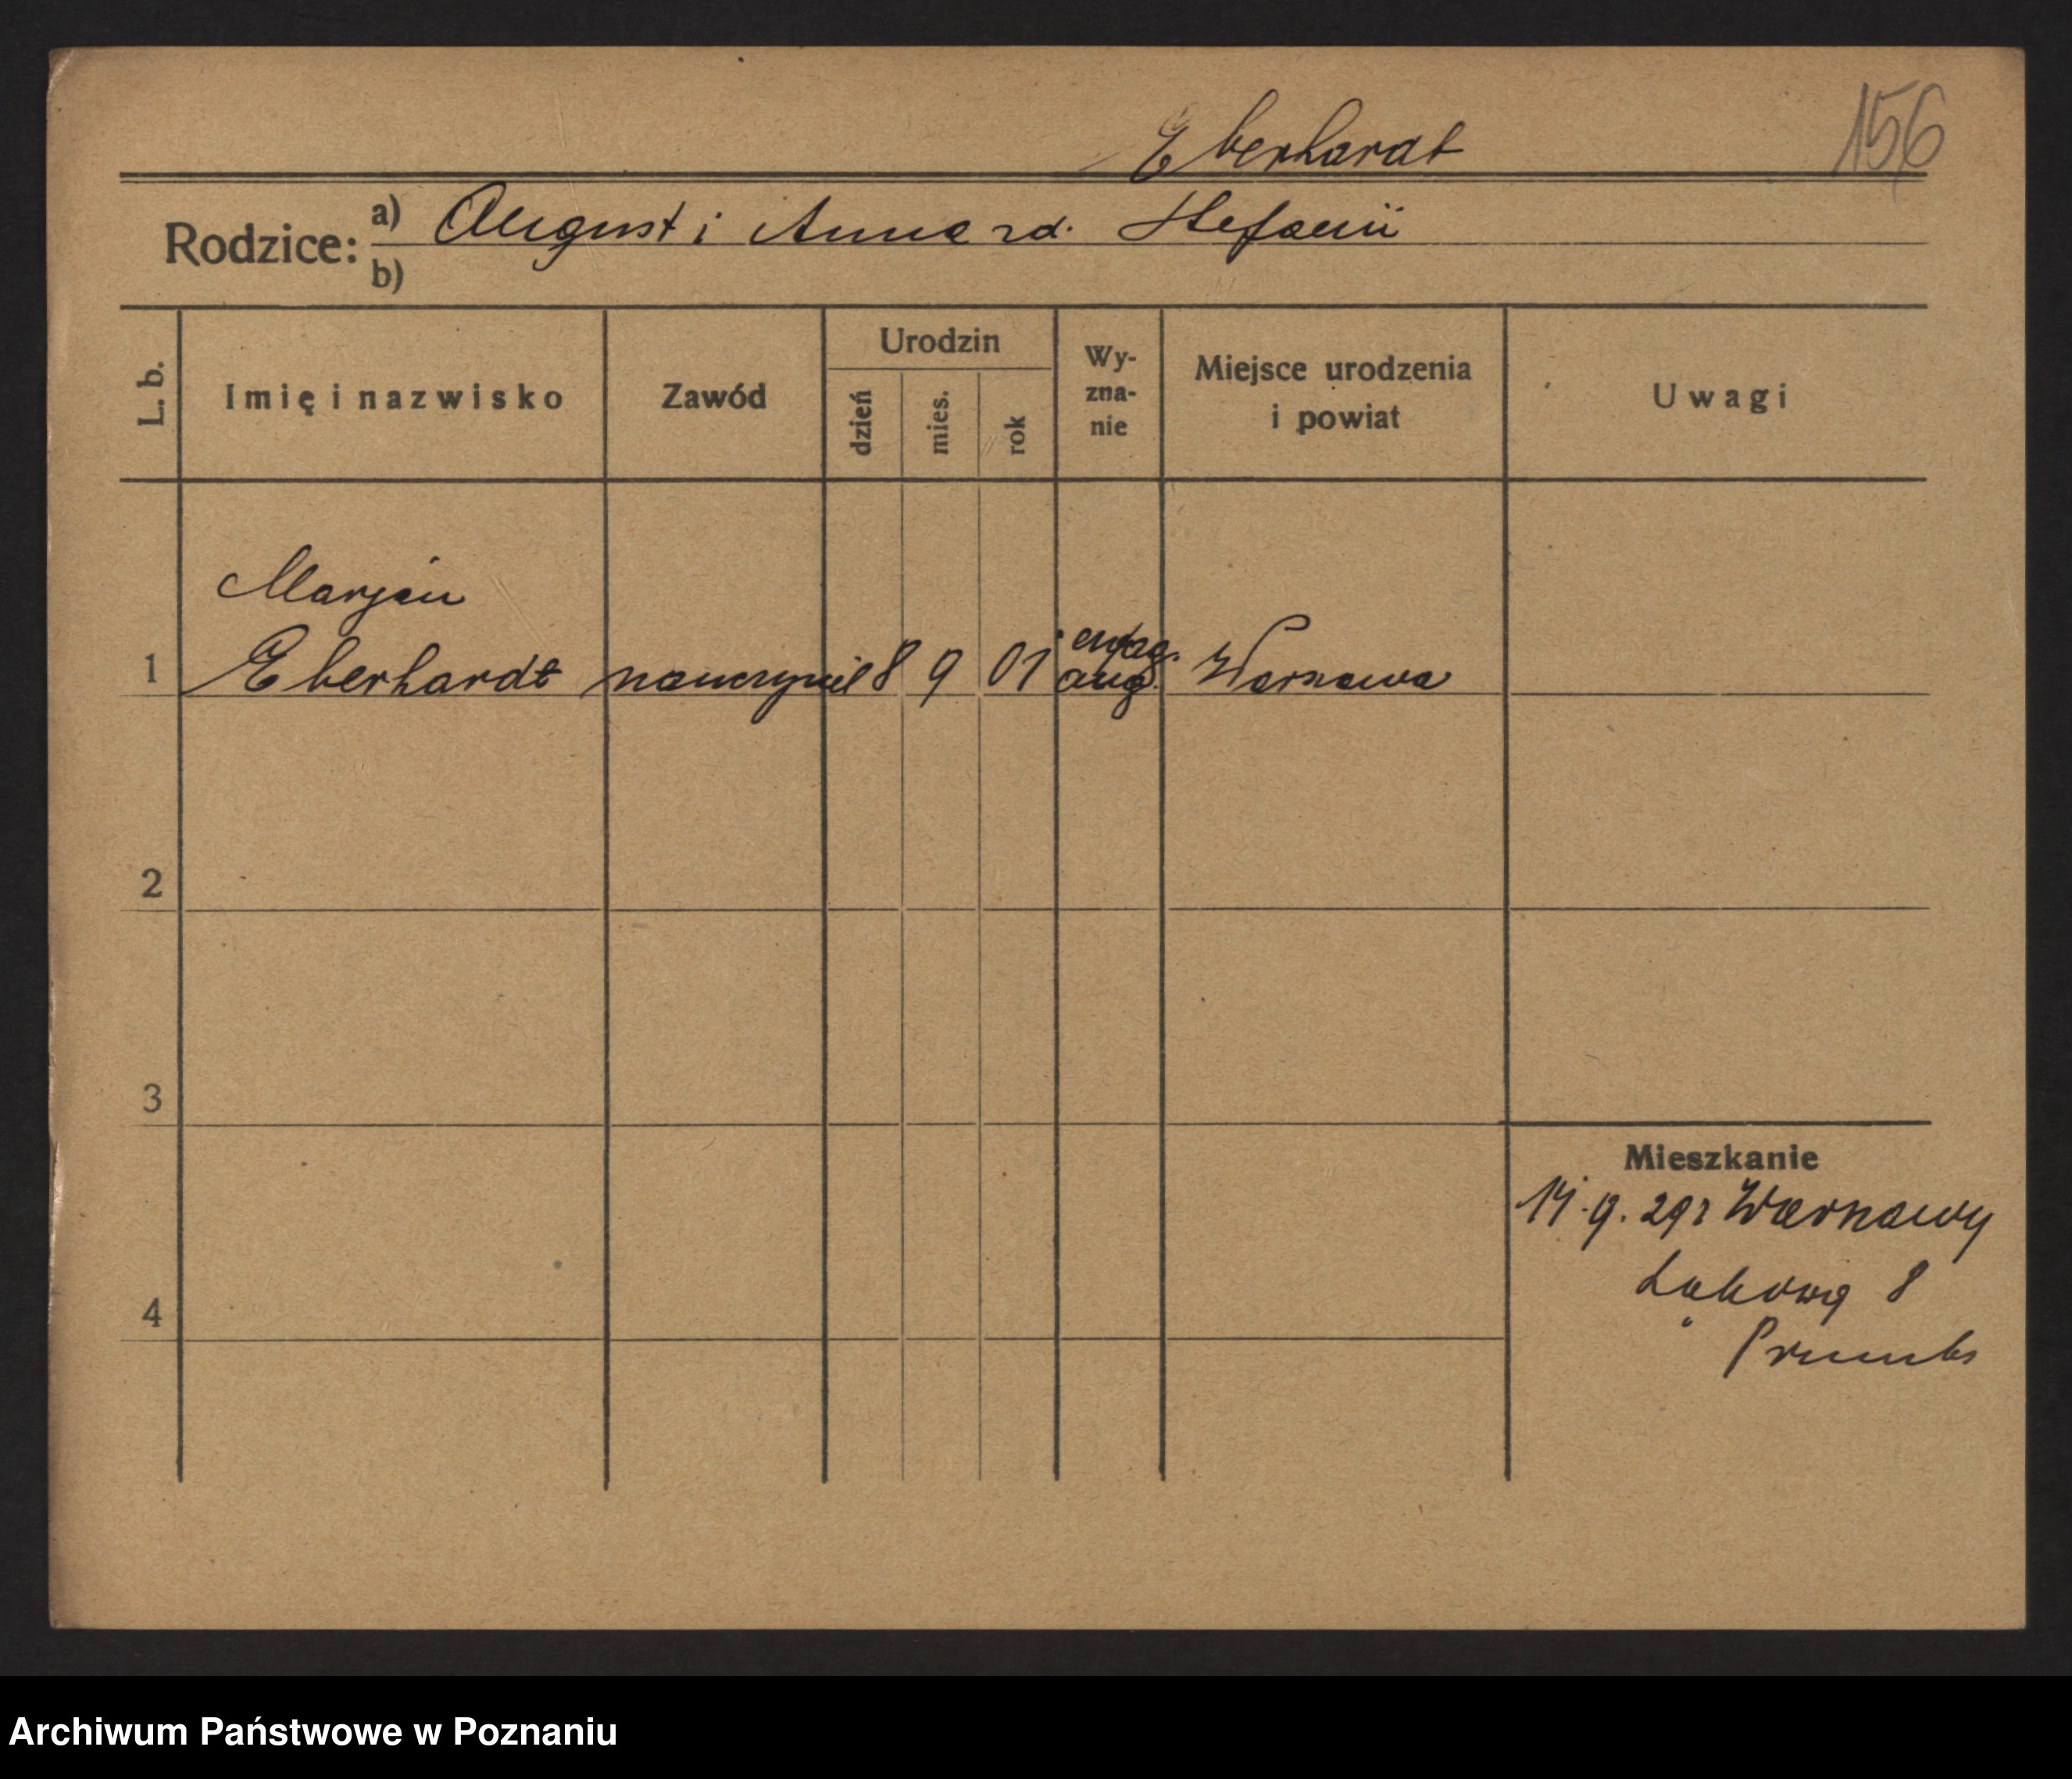 Eberhardt 156
Rodzice: a) August i Anna rd. Stefanii
b)
L. b. Imię i nazwisko Zawód Urodzin dzień mies. rok Wy-zna-nie Miejsce urodzenia i powiat Uwagi
Marjan
1 Eberhardt nauczyciel 8 9 01 ewag. aug. Warszawa
2
3
Mieszkanie
9. 29 z Warszawy
Łąkowa 8
4
Archiwum Państwowe w Poznaniu